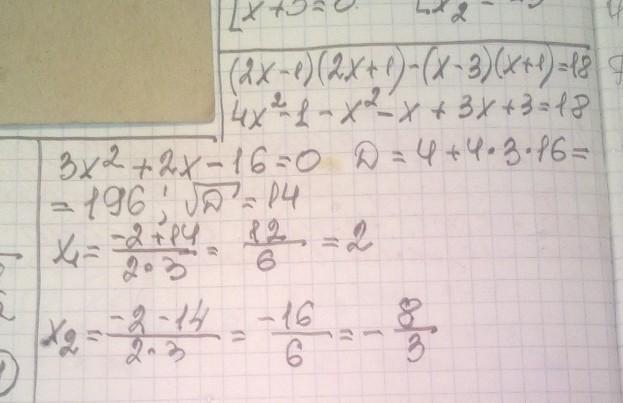 [x+5=0 [x₂=-5
(2x-1)(2x+1)-(x-3)(x+1)=18
4x²-1-x²-x+3x+3=18
3x²+2x-16=0 D=4+4·3·16=
=196; √D=14
x₁= (-2+14)/(2·3) = 12/6 =2
x₂= (-2-14)/(2·3) = -16/6 =- 8/3